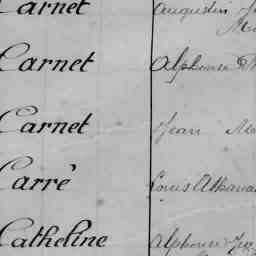 Carnet Augustin
Carnet Alphonse
Carnet Jean
Carré Louis Athanase
Catheline Alphonse